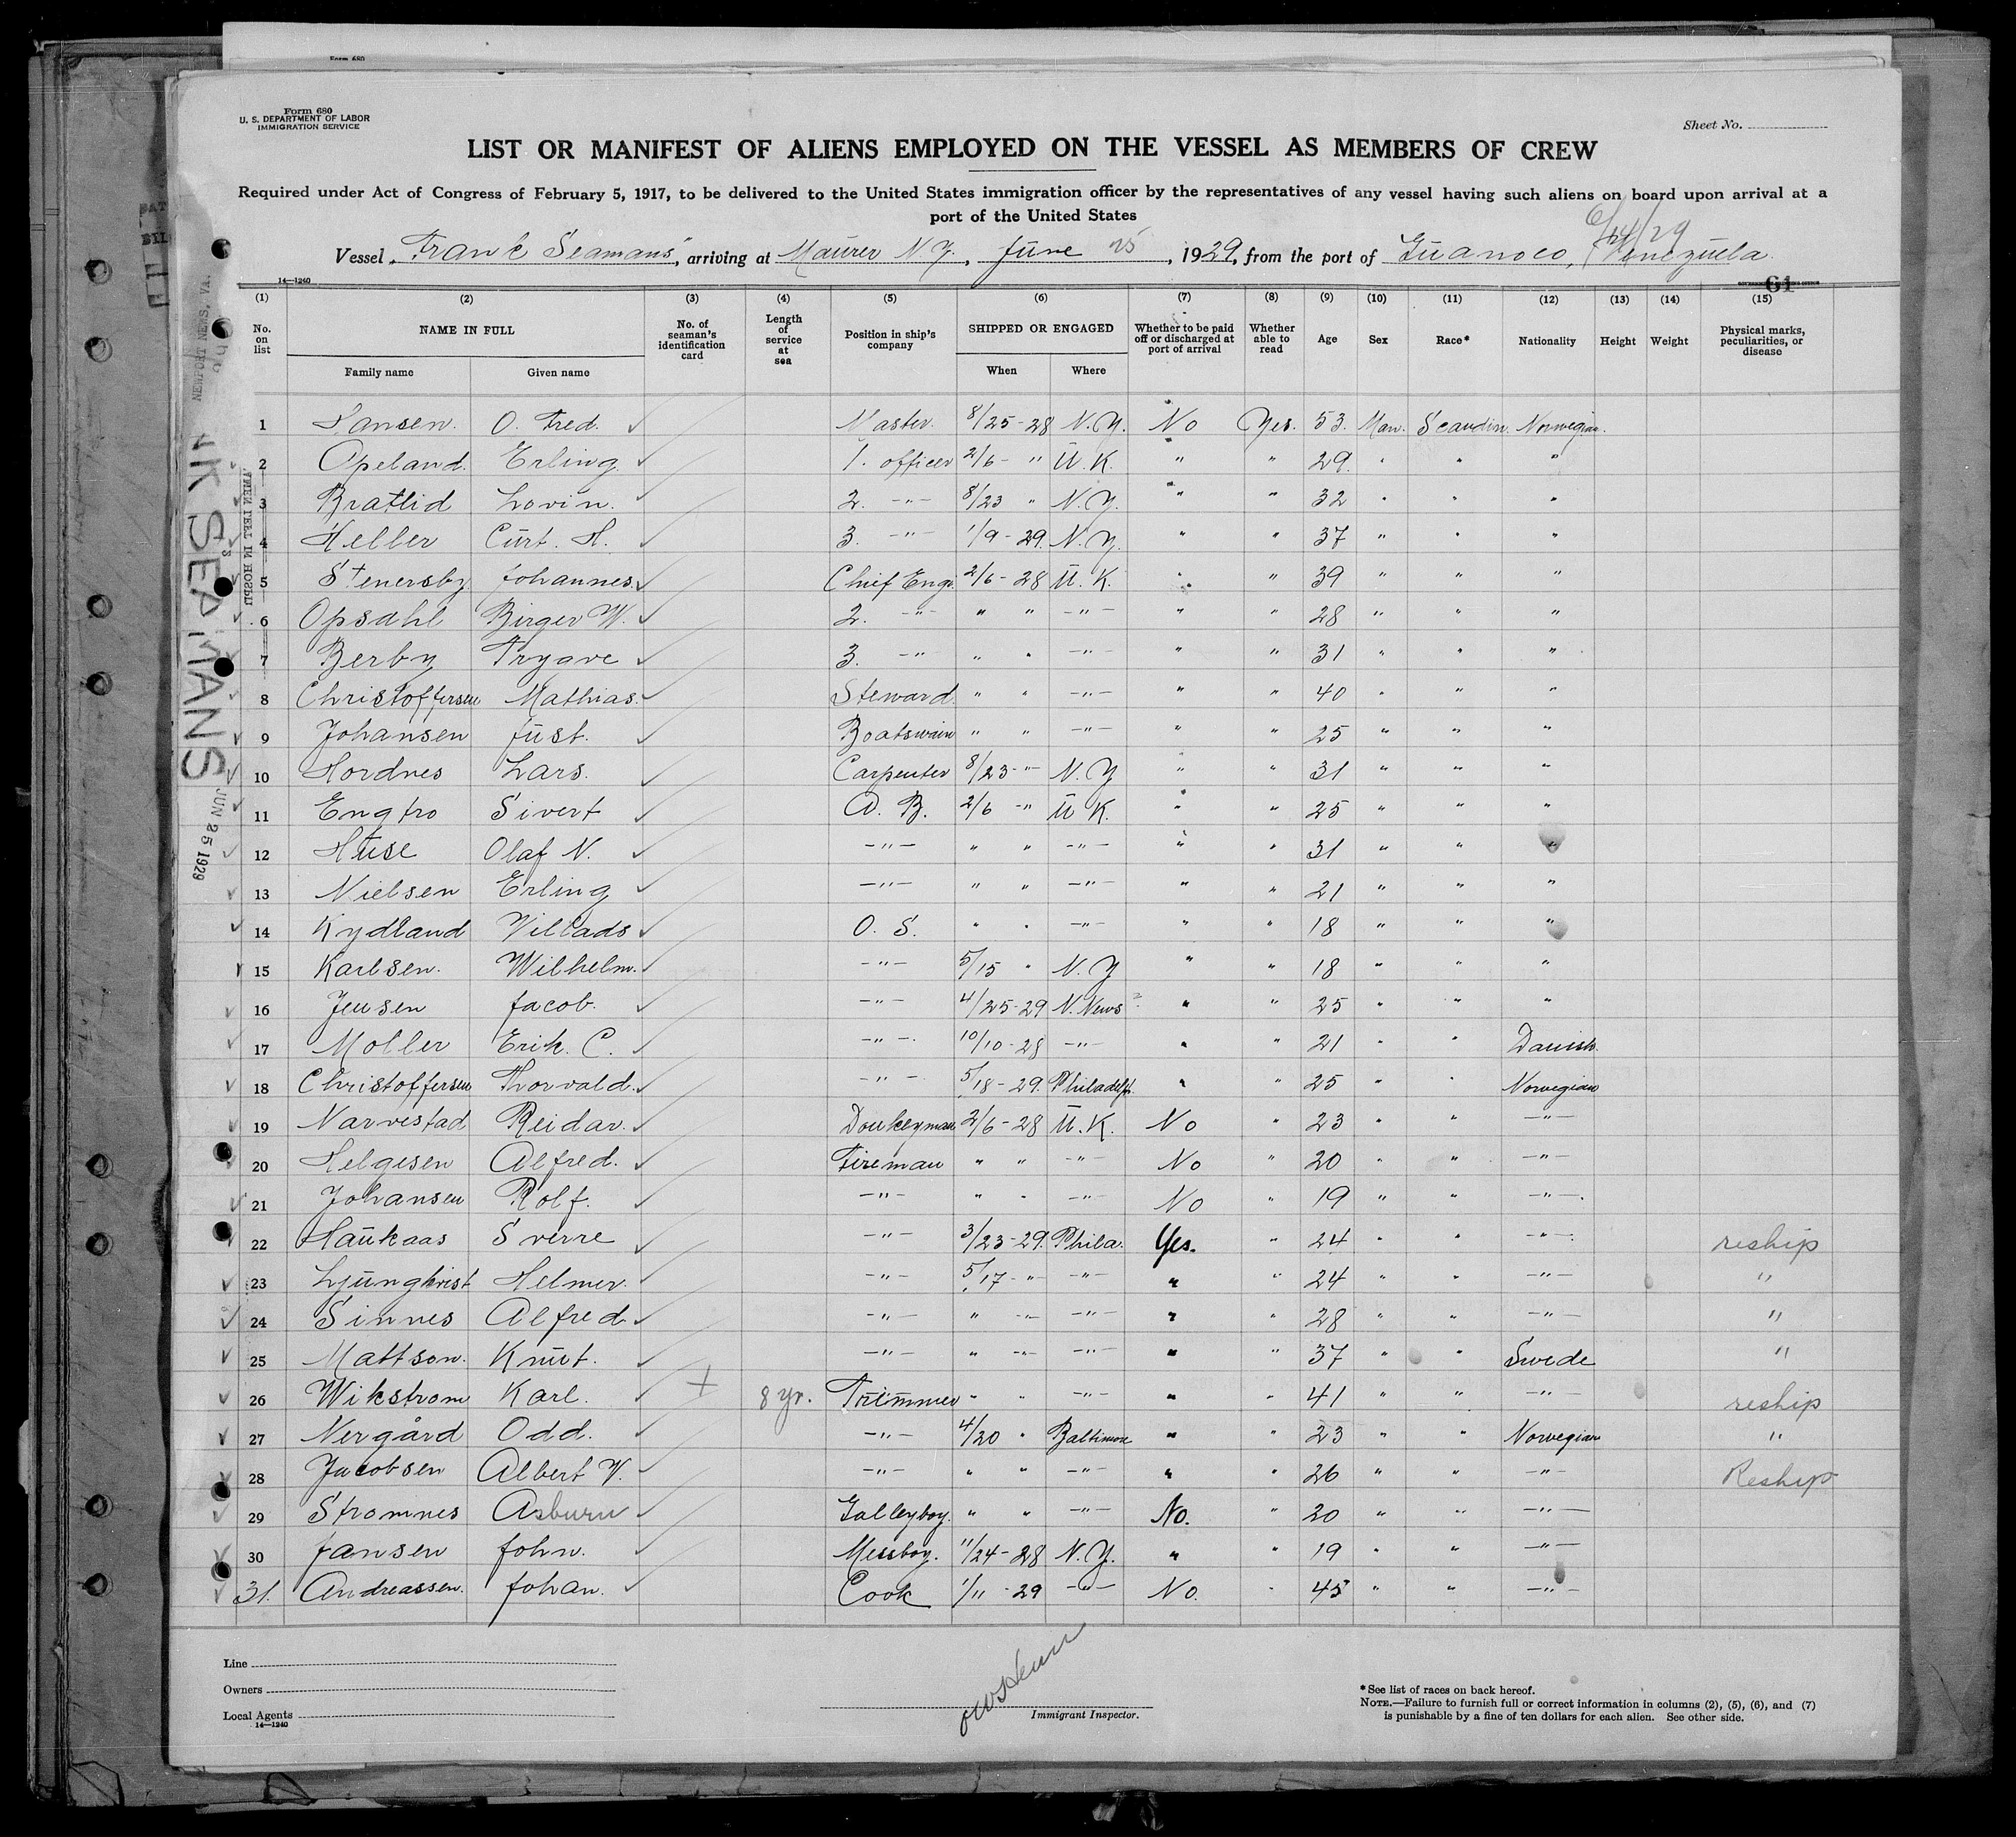 Form 680
Form 680
U. S. DEPARTMENT OF LABOR
IMMIGRATION SERVICE
Sheet No.
LIST OR MANIFEST OF ALIENS EMPLOYED ON THE VESSEL AS MEMBERS OF CREW
Required under Act of Congress of February 5, 1917, to be delivered to the United States immigration officer by the representatives of any vessel having such aliens on board upon arrival at a
port of the United States
Vessel "Frank Seamans", arriving at Maurer N.Y., June 25, 1929, from the port of Guanoco, Venezuela.
14—1240
61
(1) (2) (3) (4) (5) (6) (7) (8) (9) (10) (11) (12) (13) (14) (15)
No. on list NAME IN FULL No. of seaman's identification card Length of service at sea Position in ship's company SHIPPED OR ENGAGED Whether to be paid off or discharged at port of arrival Whether able to read Age Sex Race* Nationality Height Weight Physical marks, peculiarities, or disease
Family name Given name When Where
1 Hansen. O. Fred. Master. 8/25-28 N.Y. No Yes. 53. Man. Scandin. Norwegian.
2 Opeland. Erling 1. officer 2/6- " U.K. " " 29. " " "
3 Bratlid Lovin. 2. -"- 8/23 " N.Y. " " 32 " " "
4 Heller Curt. H. 3. -"- 1/9-29. N.Y. " " 37 " " "
5 Stenersby Johannes. Chief Eng. 2/6-28 U.K. " " 39 " " "
6 Opsahl Birger W. 2. -"- " " -"- " " 28 " " "
7 Berby Trygve 3. -"- " " -"- " " 31 " " "
8 Christoffersen Mathias. Steward. " " -"- " " 40 " " "
9 Johansen Just. Boatswain " " -"- " " 25 " " "
10 Hordnes Lars. Carpenter 8/23-" N.Y " " 31 " " "
11 Engtro Sivert A. B. 2/6 -" U K. " " 25 " " "
12 Huse Olaf N. -"- " " -"- " " 31 " " "
13 Nielsen Erling -"- " " -"- " " 21 " " "
14 Kydland Villads O. S. " " -"- " " 18 " " "
15 Karlsen. Wilhelm. -"- 5/15 " N.Y " " 18 " " "
16 Jensen Jacob. -"- 4/25-29 N. News " " 25 " " "
17 Moller Erik. C. -"- 10/10-28 -"- " " 21 " " Danish.
18 Christoffersen Thorvald. -"- 5/18-29. Philadelph. " " 25 " " Norwegian
19 Narvestad Reidar. Donkeyman. 2/6-28 U.K. No " 23 " " -"-
20 Helgesen Alfred. Fireman " " -"- No " 20 " " -"-
21 Johansen Rolf. -"- " " -"- No " 19 " " -"-
22 Haukaas Sverre -"- 3/23-29. Phila. Yes. " 24 " " -"- reship
23 Ljungkvist Helmer. -"- 5/17-" -"- " " 24 " " -"- "
24 Sinnes Alfred -"- " -"- -"- " " 28 " " -"- "
25 Mattson. Knut. -"- " -"- -"- " " 37 " " Swede "
26 Wikstrom Karl. + 8 yr. Trimmer " " -"- " " 41 " " -"- reship
27 Nergård Odd. -"- 4/20 " Baltimore " " 23 " " Norwegian "
28 Jacobsen Albert V. -"- " " -"- " " 26 " " -"- Reship
29 Stromnes Asburn Galleyboy. " " -"- No. " 20 " " -"-
30 Jansen John. Messboy. 11/24-28 N.Y. " " 19 " " -"-
31. Andreassen. Johan. Cook 1/11-29 -"- No. " 45 " " -"-
NEWPORT NEWS, Va.
SEAMANS
JUN 25 1929
Line
Owners
Local Agents
14—1240
Immigrant Inspector.
*See list of races on back hereof.
NOTE.—Failure to furnish full or correct information in columns (2), (5), (6), and (7)
is punishable by a fine of ten dollars for each alien. See other side.